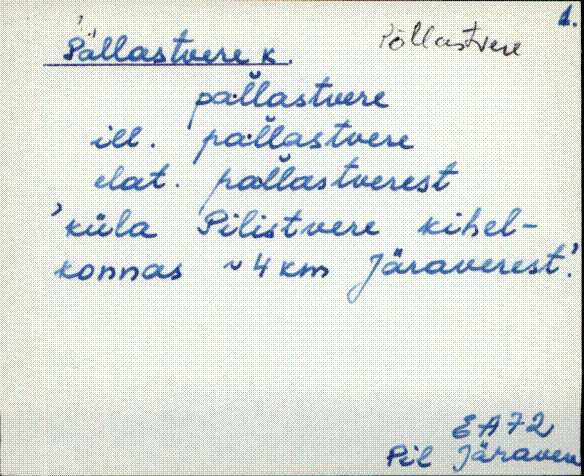 1.
Pällastvere k. Põllastvere
pällastvere
ill. pällastvere
elat. pällastverest
'küla Pilistvere kihel-
konnas ~ 4 km Järaverest'.
EA 72
Pil Järavere